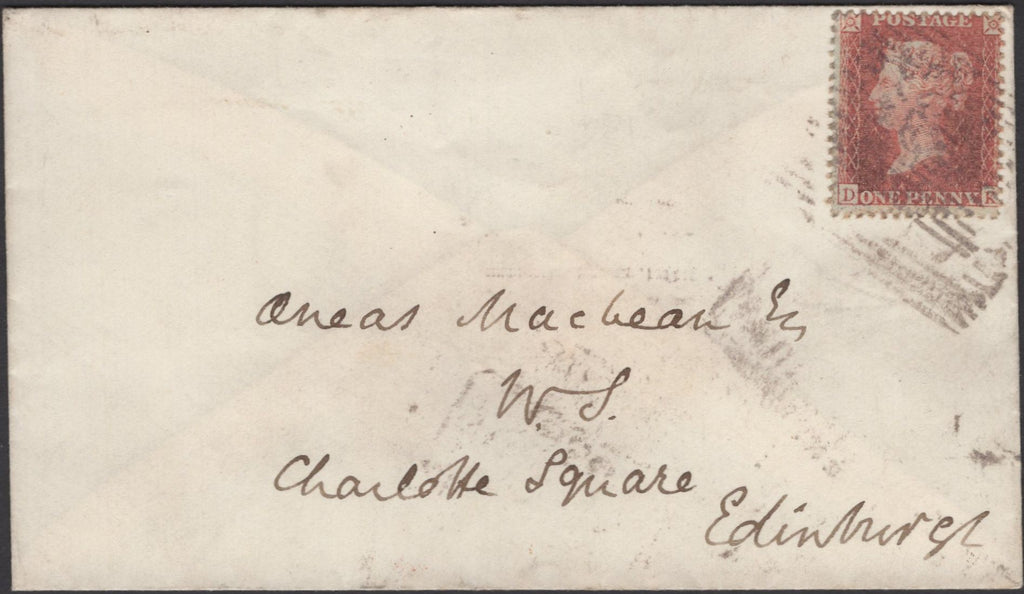 POSTAGE
D ONE PENNY K
Oneas Macbean Esq
W. S.
Charlotte Square
Edinburgh